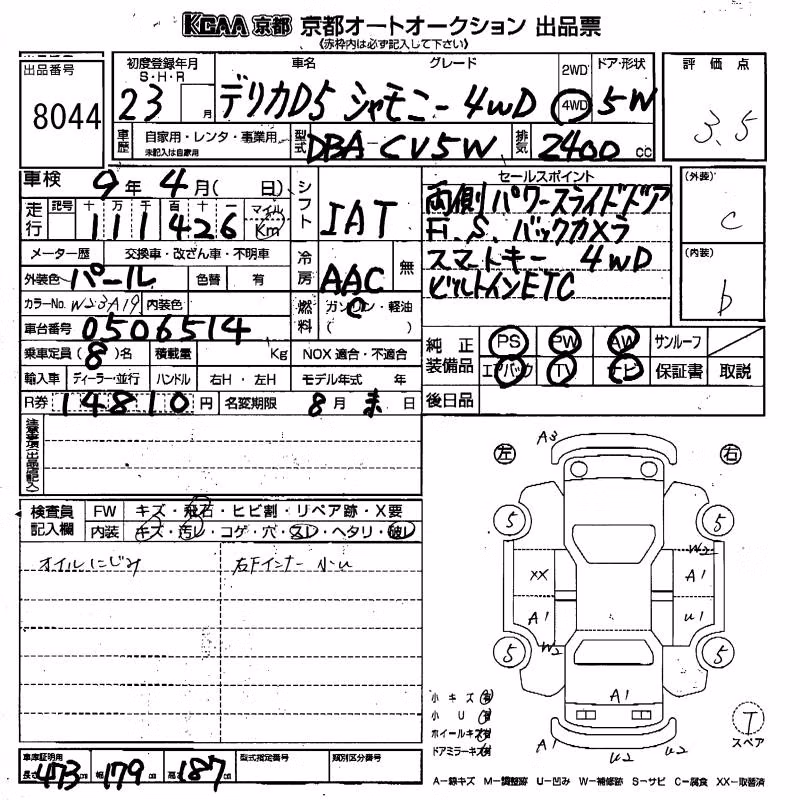 KCAA 京都 京都オートオークション 出品票
《赤枠内は必ず記入して下さい》
出品番号
8044
初度登録年月 車名 グレード 2WD ドア・形状
S・H・R
23 月 デリカD5 シャモニー 4WD 4WD 5W
車歴 自家用・レンタ・事業用 型式 DBA CV5W 排気 2400 cc
未記入は自家用
評価点
3.5
車検 9年 4月( 日) シフト IAT
走行 記号 十 万 千 百 十 一 マイル Km
111426
メーター歴 交換車・改ざん車・不明車 冷房 AAC 無
外装色 パール 色替 有
カラーNo. W23A19 内装色 燃料 ガソリン・軽油
( )
車台番号 0506514
乗車定員 (8)名 積載量 Kg NOX 適合・不適合
輸入車 ディーラー・並行 ハンドル 右H・左H モデル年式 年
R券 14810 円 名変期限 8月 末 日
セールスポイント
両側パワースライドドア
Fi、S、バックカメラ
スマートキー 4WD
ビルトインETC
(外装)
C
(内装)
b
純正装備品 PS PW AW サンルーフ
エアバック TV ナビ 保証書 取説
後日品
注意事項(出品店記入)
検査員記入欄 FW キズ・飛石・ヒビ割・リペア跡・X要
内装 キズ・汚レ・コゲ・穴・スレ・ヘタリ・破レ
オイルにじみ 右Fインナー 小U
左 A3 右
5 5
W2
XX A1
A1 U1
5 W2 5
A1
A1 U2 U2
小キズ 有
小U 有
ホイールキズ 有
ドアミラーキズ 有
T
スペア
A―線キズ M―調整跡 U―凹み W―補修跡 S―サビ C―腐食 XX―取替済
車庫証明用 型式指定番号 類別区分番号
長さ 473 cm 幅 179 cm 高さ 187 cm